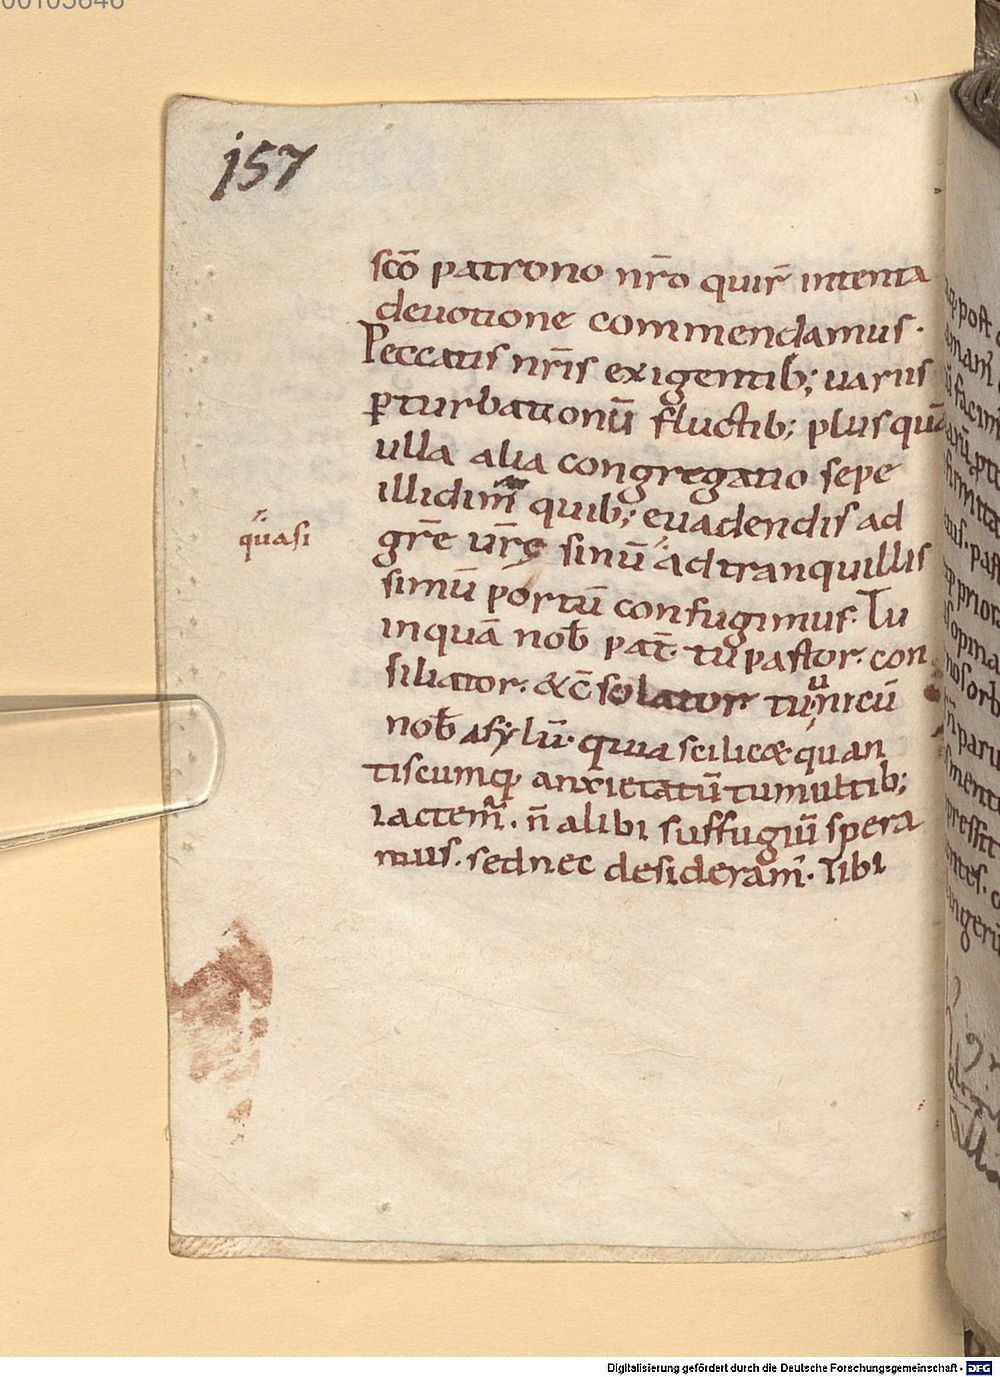 00105646
157
scō patrono nr̄o quir̄ intenta
deuotione commendamus.
Peccatis nr̄is exigentib; uariis
ꝑturbationū fluctib; plusquā
ulla alia congregatio sepe
illidim̄ quib; euadendis ad
quasi
gr̄e ur̄ę sinū ad tranquillis
simū portū confugimus. Tu
inquā nob̄ pat̄. tu pastor. con
siliator. & c̄solator tu unicū
nob̄ asẏlū. quia scilic& quan
tiscumq; anxietatū tumultib;
iactem̄. n̄ alibi suffugiū spera
mus. sed nec desideram̄. Tibi
Digitalisierung gefördert durch die Deutsche Forschungsgemeinschaft - DFG